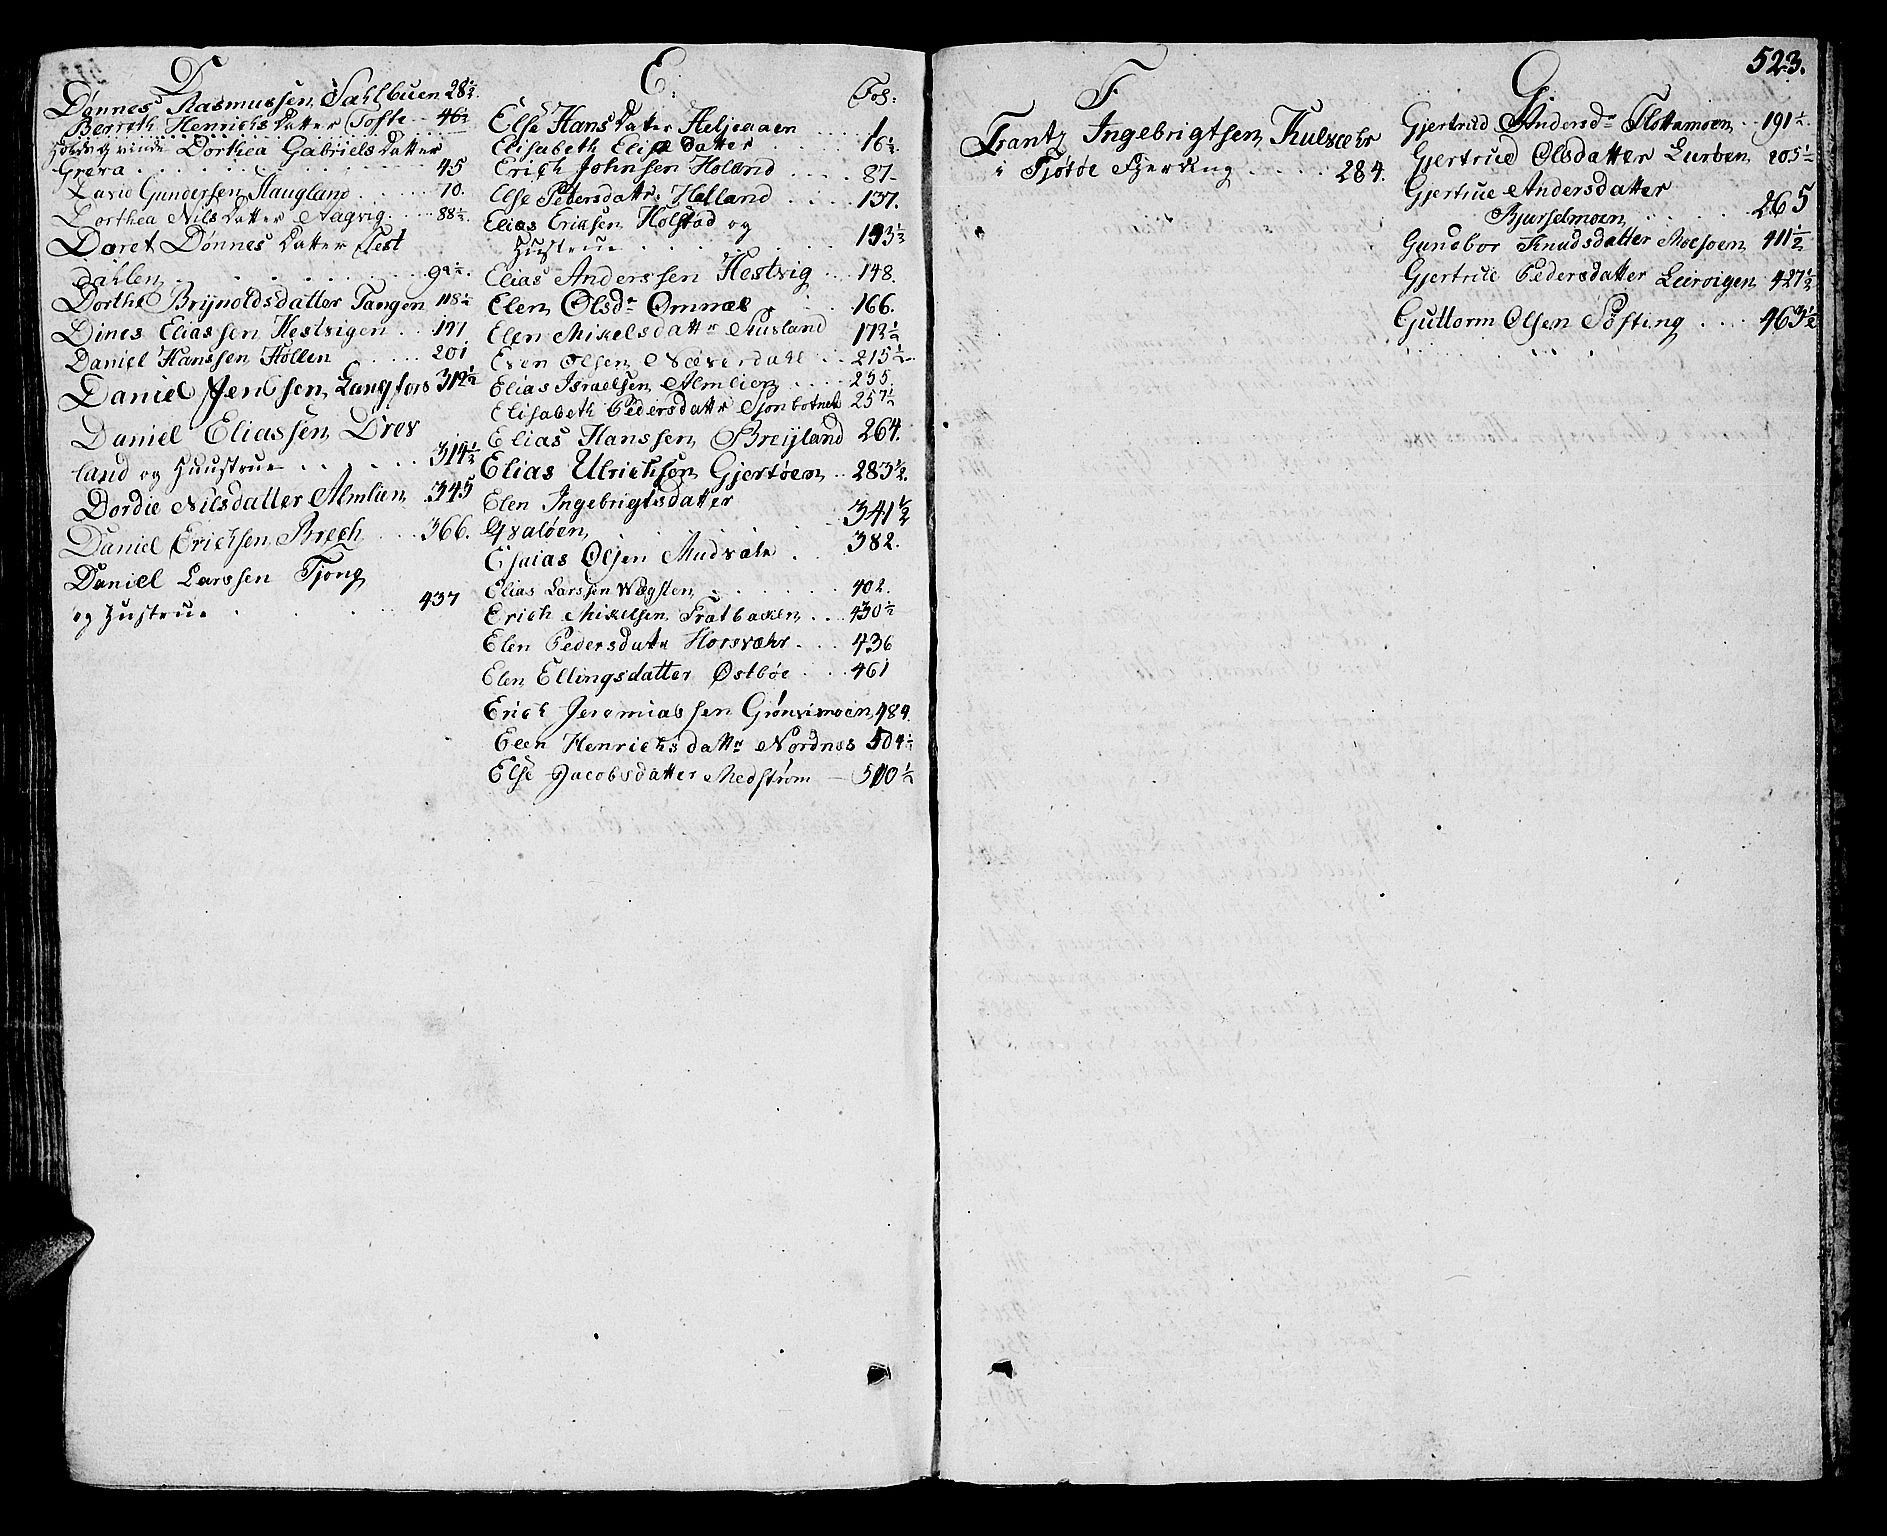 D
Dønnes Rasmussen Dahlbuen 28½
Berreth Henrichsdatter Tofte 46½
Dorthea Gabriels datter
45
David Gundersen Haugland 70.
Dorthea Nilsdatter Aagvig 88½
Doret Dønnes datter Vest
dahlen
Dorthe Brynoldsdatter Tangen 118½
Dines Eliassen Hestvigen 191
Daniel Hanssen Hollen 201
Daniel Jensen Langfors 312½
Daniel Eliassen Drev
land og Huustrue 314½
Dordie Nilsdatter Almlien 345
Daniel Erichsen Brech 366.
Daniel Larssen Tjong
og Hustrue 437
E.
Fol:
Else Hansdatter Heljeaaen 1.
Elisabeth Elisæ datter 16½
Erich Johnsen Holand 87.
Else Pedersdattr. Halland 137.
Elias Erichsen Holstad og
Hustrue 143½
Elias Anderssen Hestvig 148.
Elen Olsdr Omnæs 166.
Elen Mikelsdattr Husland 173½
Even Olsen Næverdahl 215½
Elias Israelsen Almlien 235.
Elisabeth Pedersdattr Sjonbotnet 257½
Elias Hanssen Breyland 264.
Elias Ulrichsen Gjertøen 283½.
Elen Ingebrigtsdatter
Qvaløen 341½
Esaias Olsen Mudvale 382.
Elias Larssen Wægsten 402.
Erich Mikelsen Fratbaken 430½
Elen Pedersdattr Horsvæhr 436
Elen Ellingsdatter Østbøe 461
Erich Jeremiassen Grønvimoen 484.
Elen Henrichsdattr Nordnes 504½
Else Jacobsdatter Medstrøm 510½
F
Frantz Ingebrigtsen Kulvæhr
i Tjøtøe Fjerding 284.
G.
523.
Gjertrud Andersdr Flottamoen 191½.
Gjertrue Olsdatter Lurben 205½
Gjertrue Andersdatter
Bjurselmoen 265
Gundbor Knudsdatter Moesoen 411½
Gjertrue Pedersdatter Leirvigen 427½
Guttorm Olsen Søfting 463½